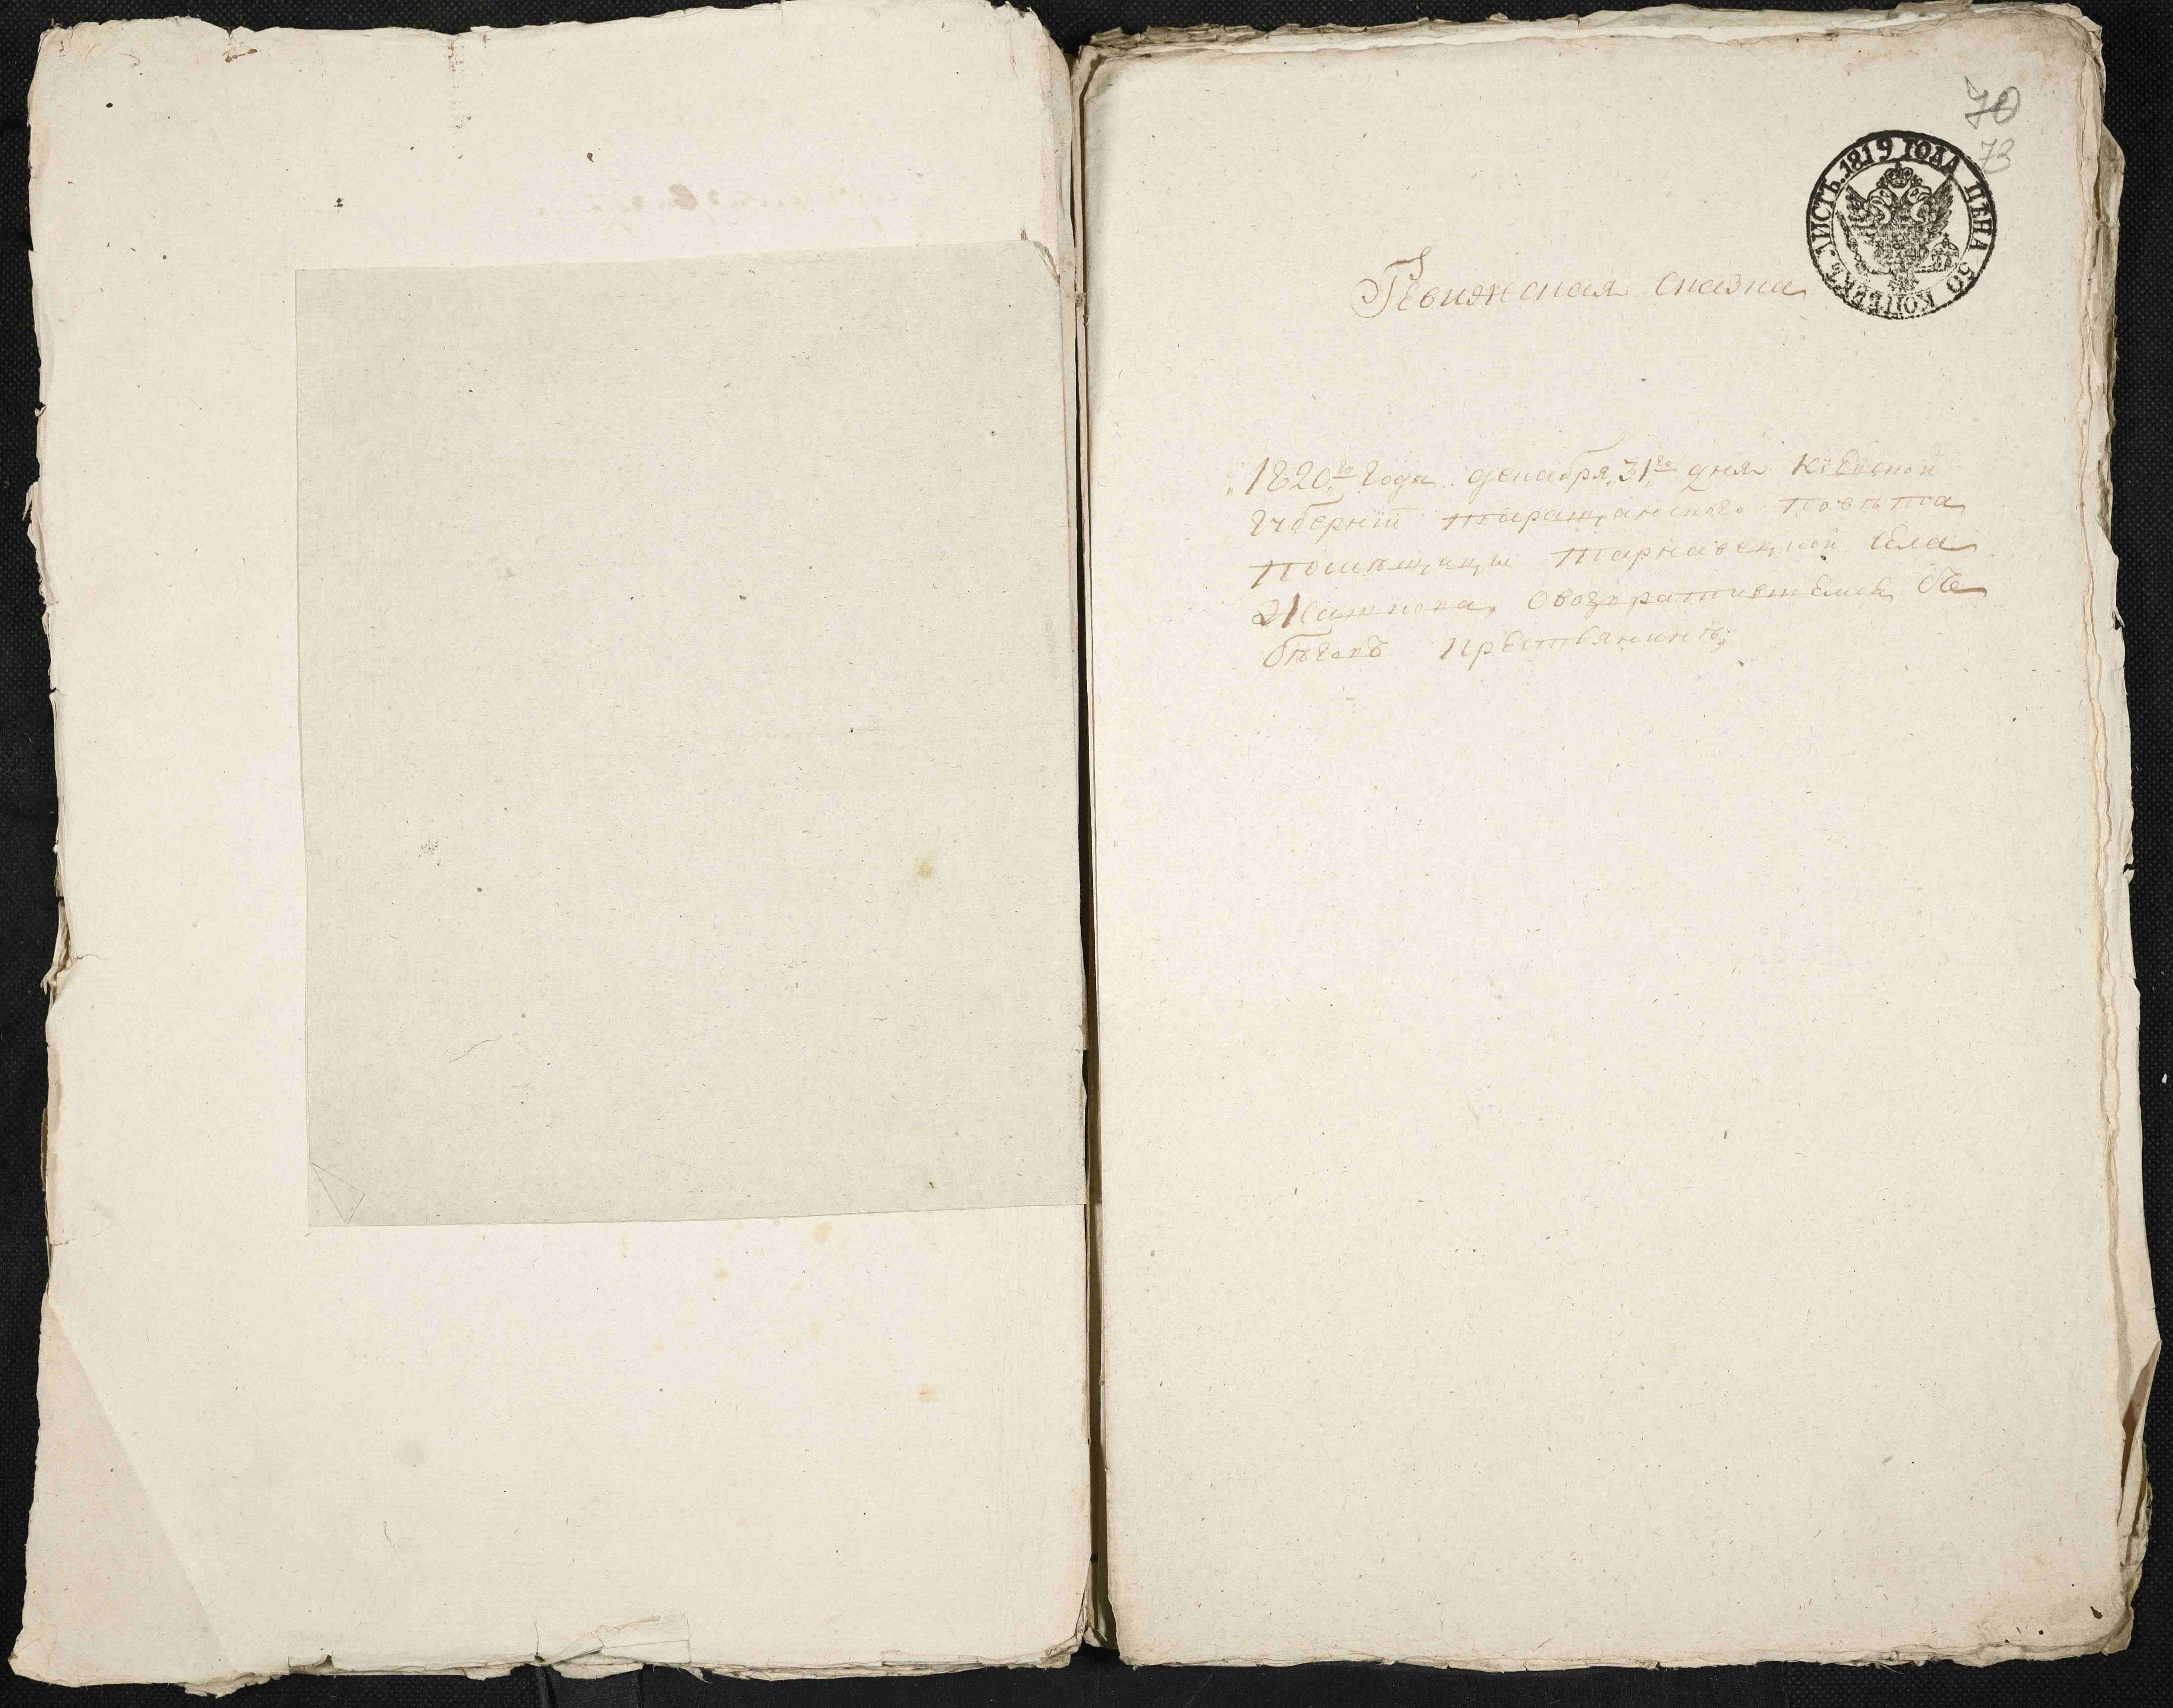 70
73
ЛИСТЪ. 1819 ГОДА ЦЕНА 50 КОПѢЕКЪ.
Ревижская сказка
1820,,го Года декабря,,31,го дня Кіевской
Губерніи таращанского повѣта
помѣщицы тарнавецкой села
Жашкова, овозвратившемся сь
бѣговъ крестьянинѣ;